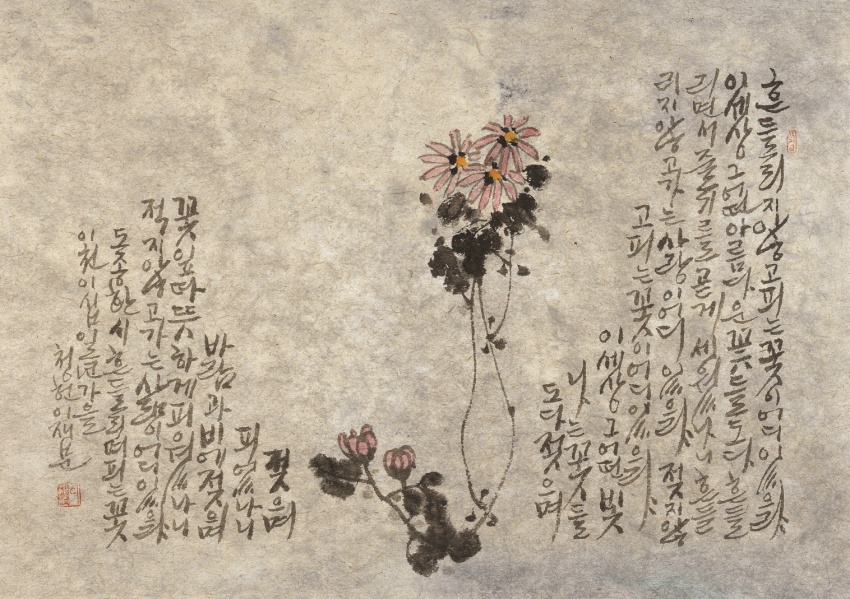 흔들리지 않고 피는 꽃이 어디 있으랴
이 세상 그 어떤 아름다운 꽃들도 다 흔들
리면서 줄기를 곧게 세웠나니 흔들
리지 않고 가는 사랑이 어디 있으랴 젖지 않
고 피는 꽃이 어디 있으랴
이 세상 그 어떤 빛
나는 꽃들
도 다 젖으며
젖으며
피었나니
바람과 비에 젖으며
꽃잎 따뜻하게 피웠나니
젖지 않고 가는 삶이 어디 있으랴
도종환 시 흔들리며 피는 꽃
이천이십일년 가을
이재문